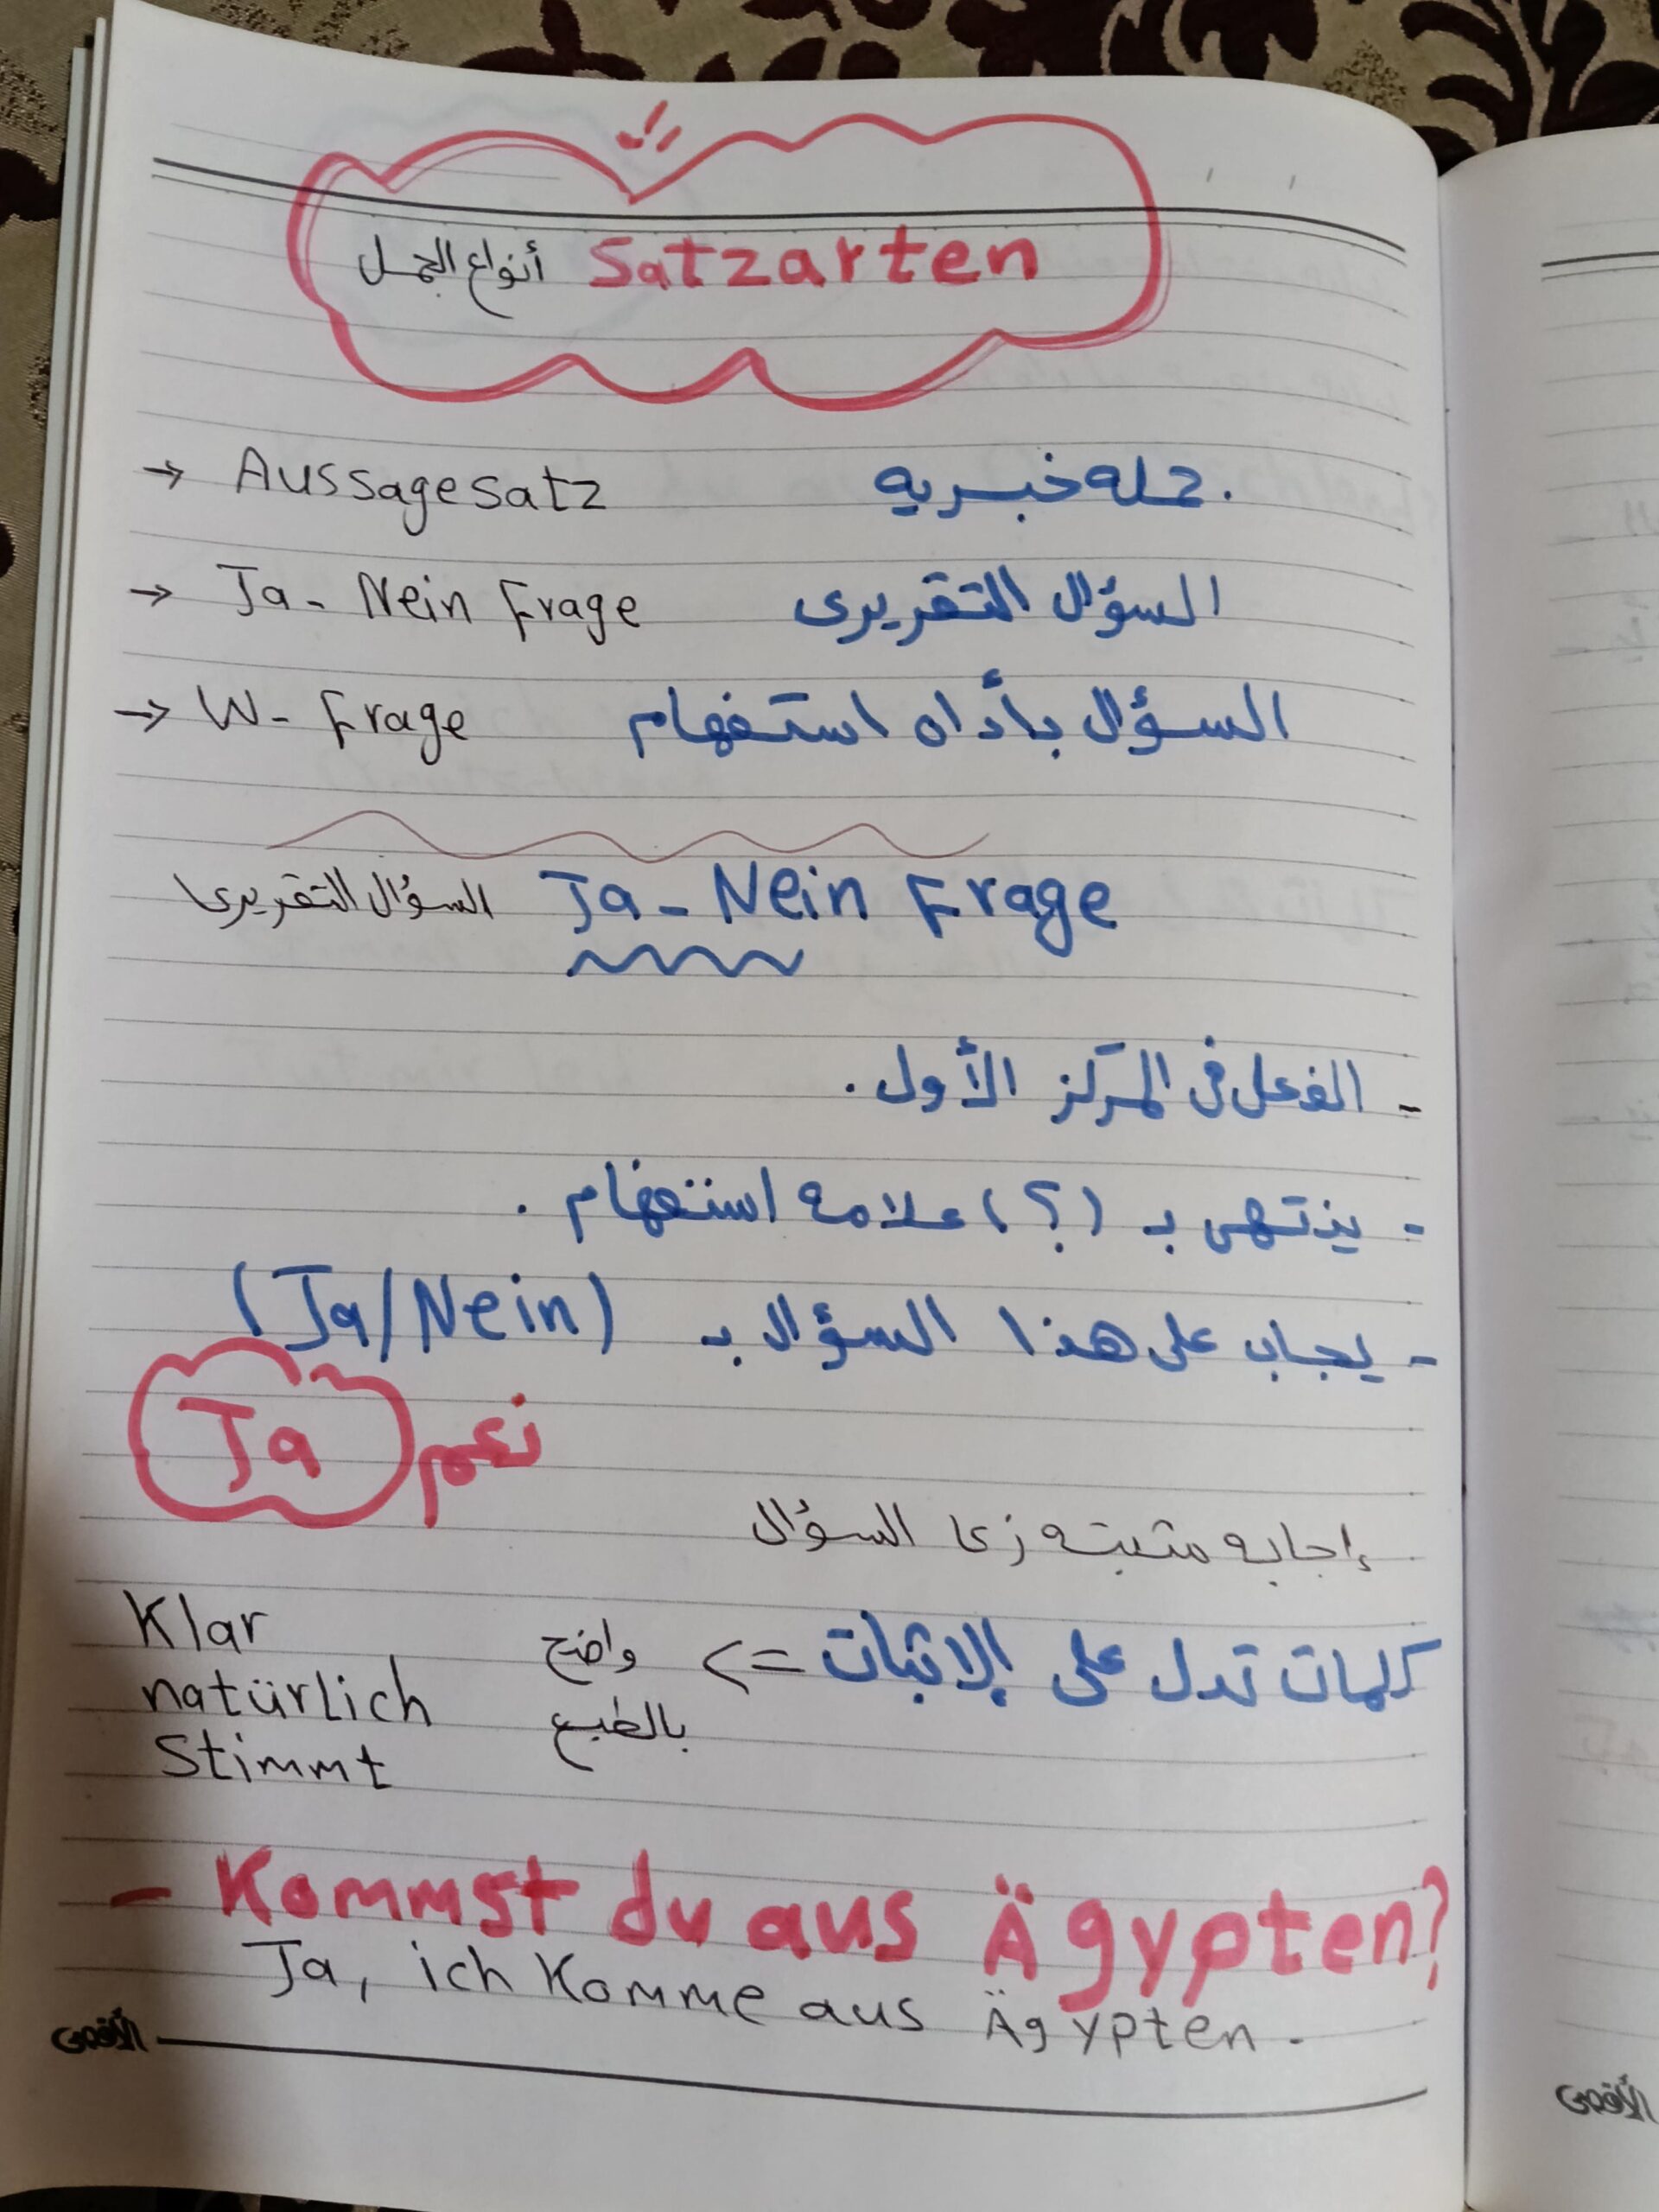 أنواع الجمل Satzarten
→ Aussagesatz جمله خبريه.
→ Ja - Nein Frage السؤال التقريرى
→ W- Frage السؤال بأداه استفهام
السؤال التقريرى Ja - Nein Frage
- الفعل فى المركز الأول.
- ينتهى بـ (؟) علامه استفهام.
- يجاب على هذا السؤال بـ (Ja/Nein)
Ja نعم
إجابه مثبته زى السؤال
كلمات تدل على الإثبات => واضح Klar
بالطبع natürlich
Stimmt
- Kommst du aus Ägypten?
Ja, ich Komme aus Ägypten.
الأقصى
الأقصى